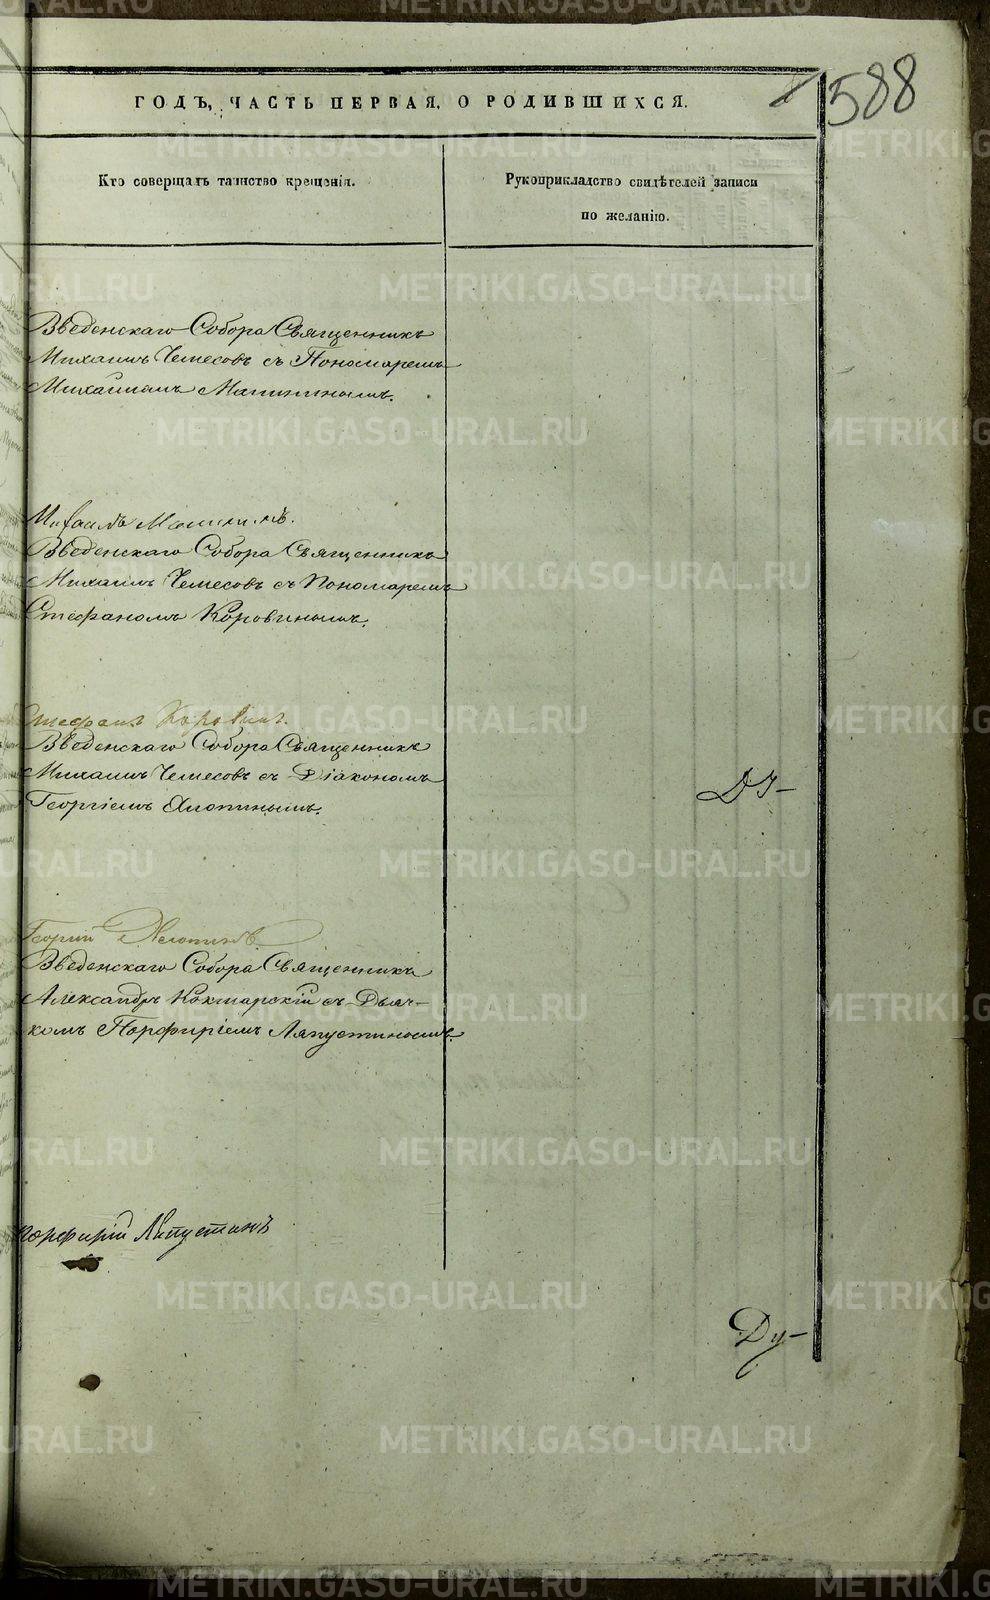 588
ГОДЪ, ЧАСТЬ ПЕРВАЯ, О РОДИВШИХСЯ.
Кто совершалъ таинство крещенія.
Рукоприкладство свидѣтелей записи
по желанію.
Введенскаго Собора Священникъ
Михаилъ Чемесовъ съ Пономаремъ
Михаиломъ Мапининымъ.
Михаилъ
Введенскаго Собора Священникъ
Михаилъ Чемесовъ съ Пономаремъ
Стефаномъ Коровинымъ.
Стефанъ Коровинъ.
Введенскаго Собора Священникъ
Михаилъ Чемесовъ съ Діакономъ
Георгіемъ
Георгій
Введенскаго Собора Священникъ
Александръ Кокшарскій съ Дьяч-
комъ Порфиріемъ Ляпустинымъ.
Порфирій Ляпустинъ
METRIKI.GASO-URAL.RU